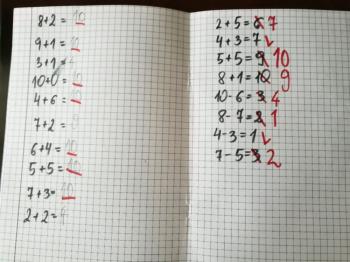 8+2=10
9+1=10
3+1=4
10+0=10
4+6=10
7+2=9
6+4=10
5+5=10
7+3=10
2+2=4
2+5=6 7
4+3=7
5+5=9 10
8+1=10 9
10-6=3 4
8-7=2 1
4-3=1
7-5=3 2